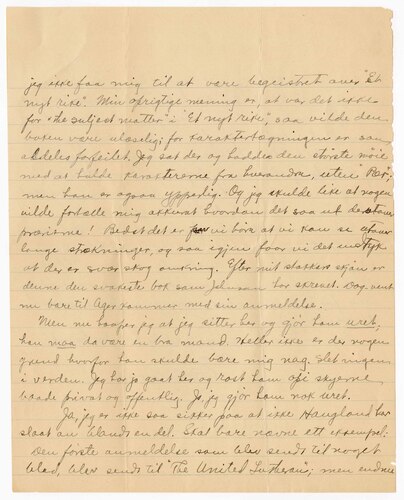 jeg ikke faa mig til at være begeistret over "Et
nyt rike". Min oprigtige mening er, at var det ikke
for "the subject matter" i "Et nyt rike", saa vilde den
boken være ulæselig; for karaktertegningen er saa
aldeles forfeilet. Jeg sat der og hadde den største møie
med at holde karakterene fra hverandre, uten Per;
men han er ogsaa ypperlig. Og jeg skulde like at nogen
vilde fortælle mig akkurat hvordan det saa ut de store
præriene! Bedst det er vi høre at vi kan se
lange strækninger, og saa igjen faar vi det
at der er svær skog omkring. Efter mit skjøn er
denne den svakeste bok som Johnson har skrevet. Bare vent
nu bare til Ager kommer med sin anmeldelse.
Men nu haaper jeg at jeg sitter her og gjør ham uret;
han maa da være en bra mand. Heller ikke er der nogen
grund hvorfor han skulde bære mig nag. Slet ingen
i verden. Jeg har jo gaat her og rost ham op i skyerne
baade privat og offentlig. Jo, jeg gjør ham nok uret.
Ja, jeg er ikke saa sikker paa at ikke Haugland har
slaat an blandt en del. Skal bare nævne ett eksempel:
Den første anmeldelse som blev sendt til noget
blad, blev sendt til "The United Lutheran"; men endnu